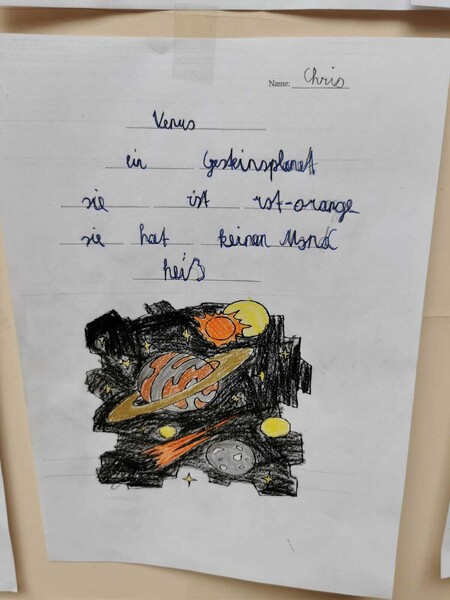 Name: Chris
Venus
ein Gesteinsplanet
sie ist rot-orange
sie hat keinen Mond
heiß